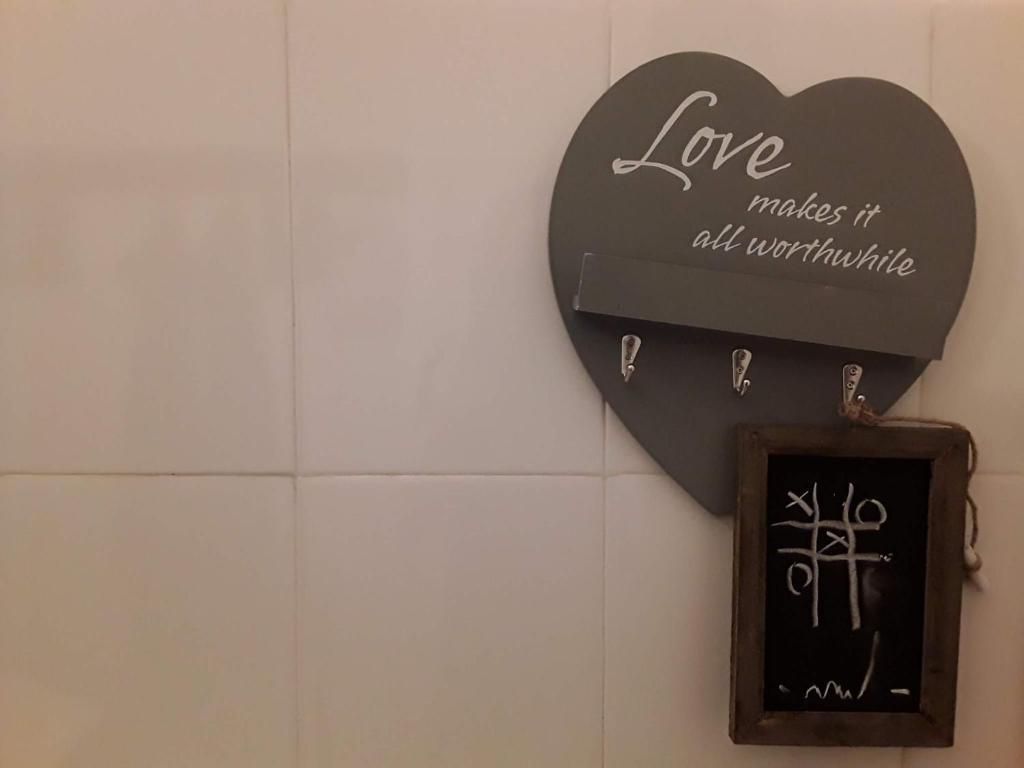 Love
makes it
all worthwhile
X O
X
O